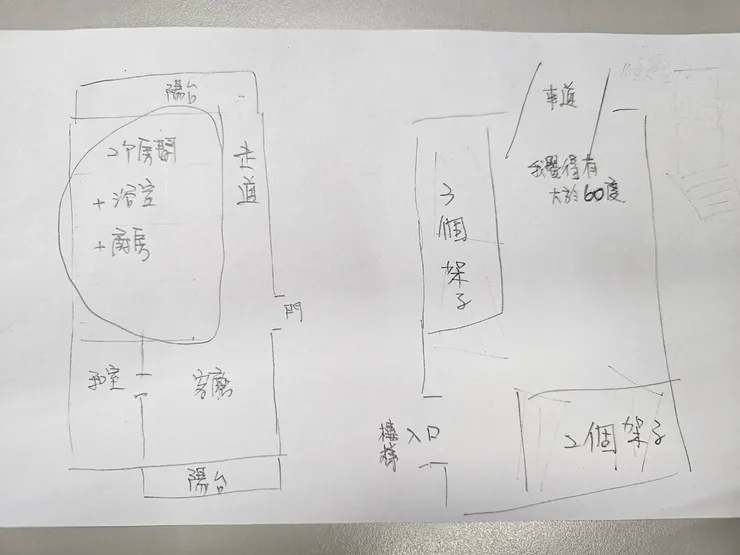 陽台
2个房間
+浴室
+廚房
走道
門
和室
客廳
陽台
車道
我覺得有
大於60度
3個架子
樓梯
入口
2個架子